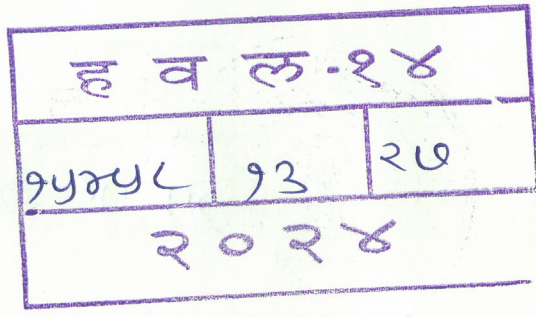 ह व ल-१४
१५४५८ १३ २७
२०२४